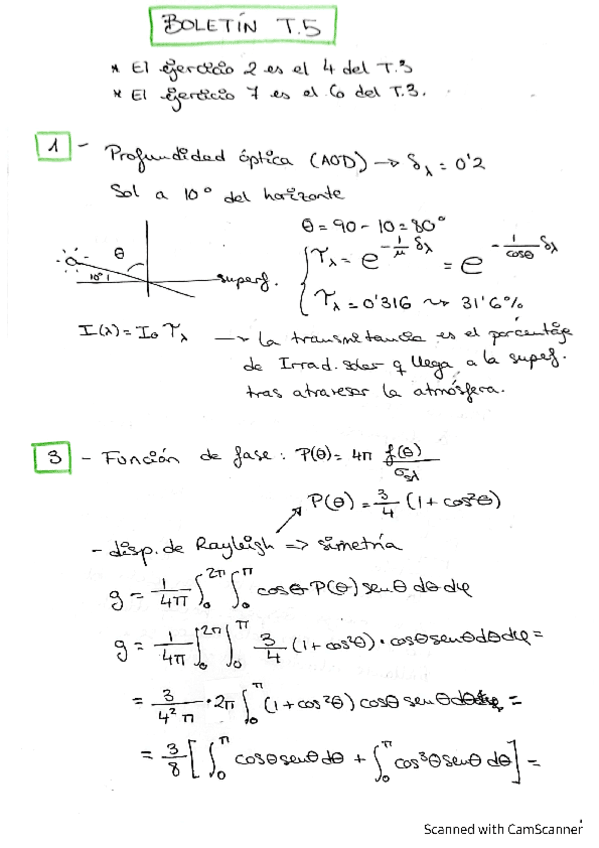 BOLETÍN T.5
* El ejercicio 2 es el 4 del T.3
* El ejercicio 7 es el 6 del T.3.
1 - Profundidad óptica (AOD) → δλ = 0'2
Sol a 10° del horizonte
θ = 90 - 10 = 80°
θ
10°
superf.
τλ = e^(-1/μ δλ) = e^(-1/cosθ δλ)
τλ = 0'316 ⇝ 31'6%
I(λ) = I₀ τλ → La transmitancia es el porcentaje
de Irrad. solar q llega a la superf.
tras atravesar la atmósfera.
3 - Función de fase: P(θ) = 4π f(θ)/σsλ
P(θ) = 3/4 (1 + cos²θ)
- disp. de Rayleigh ⇒ simetría
g = 1/4π ∫₀^2π ∫₀^π cosθ P(θ) senθ dθ dφ
g = 1/4π ∫₀^2π ∫₀^π 3/4 (1 + cos²θ) · cosθ senθ dθ dφ =
= 3/4²π · 2π ∫₀^π (1 + cos²θ) cosθ senθ dθ =
= 3/8 [∫₀^π cosθ senθ dθ + ∫₀^π cos³θ senθ dθ] =
Scanned with CamScanner